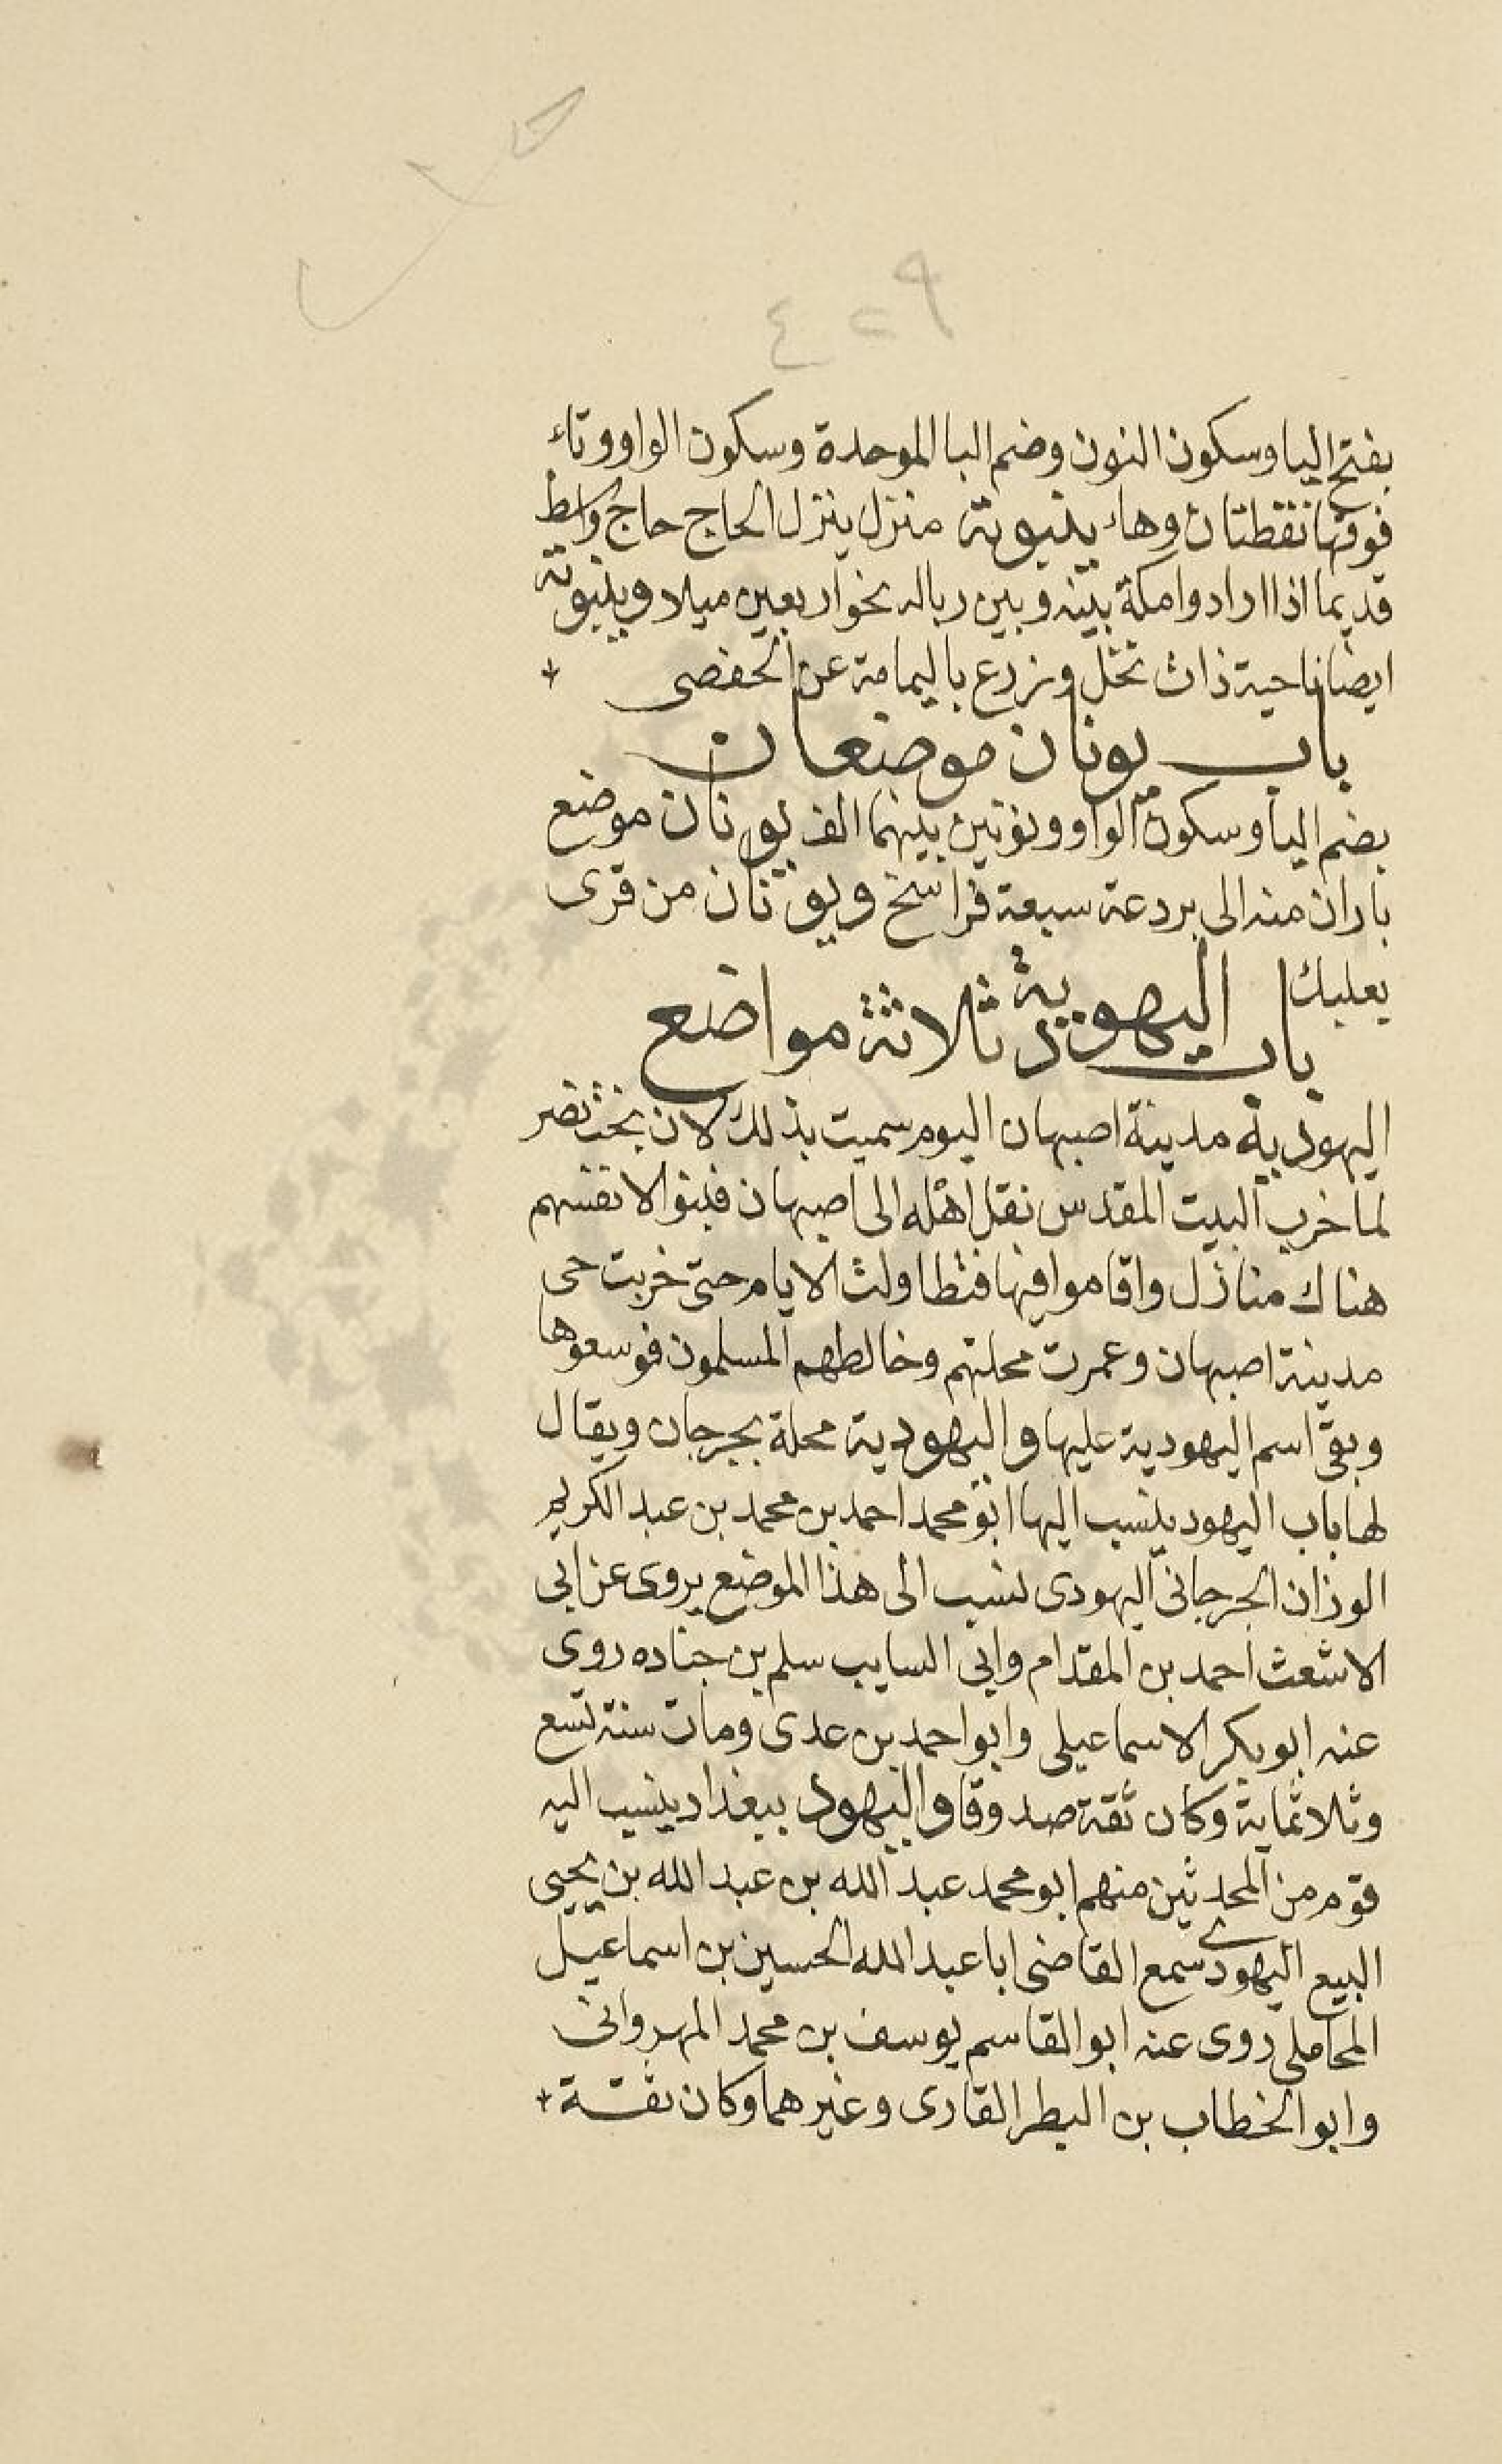 ٤٠٩
بفتح اليا وسكون النون وضم البا الموحدة وسكون الواو وتاء
فوقها نقطتان وهاء ينبوتة منزل ينزل الحاج حاج واسط
قديما اذا ارادوا مكة بينه وبين زباله نحو اربعين ميلا وينبوتة
ايضا ناحية ذات نخل وزرع باليمامة عن الحفصى
باب يونان موضعان
بضم اليا وسكون الواو ونونين بينهما الف يونان موضع
باران منه الى بردعة سبعة فراسخ ويونان من قرى
بعلبك
باب اليهودية ثلاثة مواضع
اليهودية مدينة اصبهان اليوم سميت بذلك لان بخت نصر
لما خرب البيت المقدس نقل اهله الى اصبهان فبنوا لانفسهم
هناك منازل واقاموا فيها فتطاولت الايام حتى خربت حى
مدينة اصبهان وعمرت محلتهم وخالطهم المسلمون فوسعوها
وبقى اسم اليهودية عليها واليهودية محلة بجرجان ويقال
لها باب اليهود ينسب اليها ابو محمد احمد بن محمد بن عبد الكريم
الوزان الجرجانى اليهودى نسب الى هذا الموضع يروى عن ابى
الاشعث احمد بن المقدام وابى السايب سلم بن جناده روى
عنه ابو بكر الاسماعيلى وابو احمد بن عدى ومات سنة تسع
وثلاثماية وكان ثقة صدوقا واليهود ببغداد ينسب اليه
قوم من المحدثين منهم ابو محمد عبد الله بن عبد الله بن يحيى
البيع اليهودى سمع القاضى ابا عبد الله الحسين بن اسماعيل
المحاملى روى عنه ابو القاسم يوسف بن محمد المهروانى
وابو الخطاب بن البطر القارى وغيرهما وكان ثقة